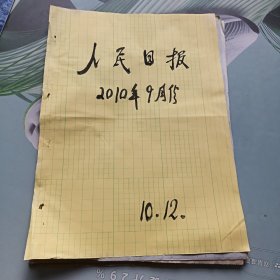 人民日报
2010年9月份
10.12.